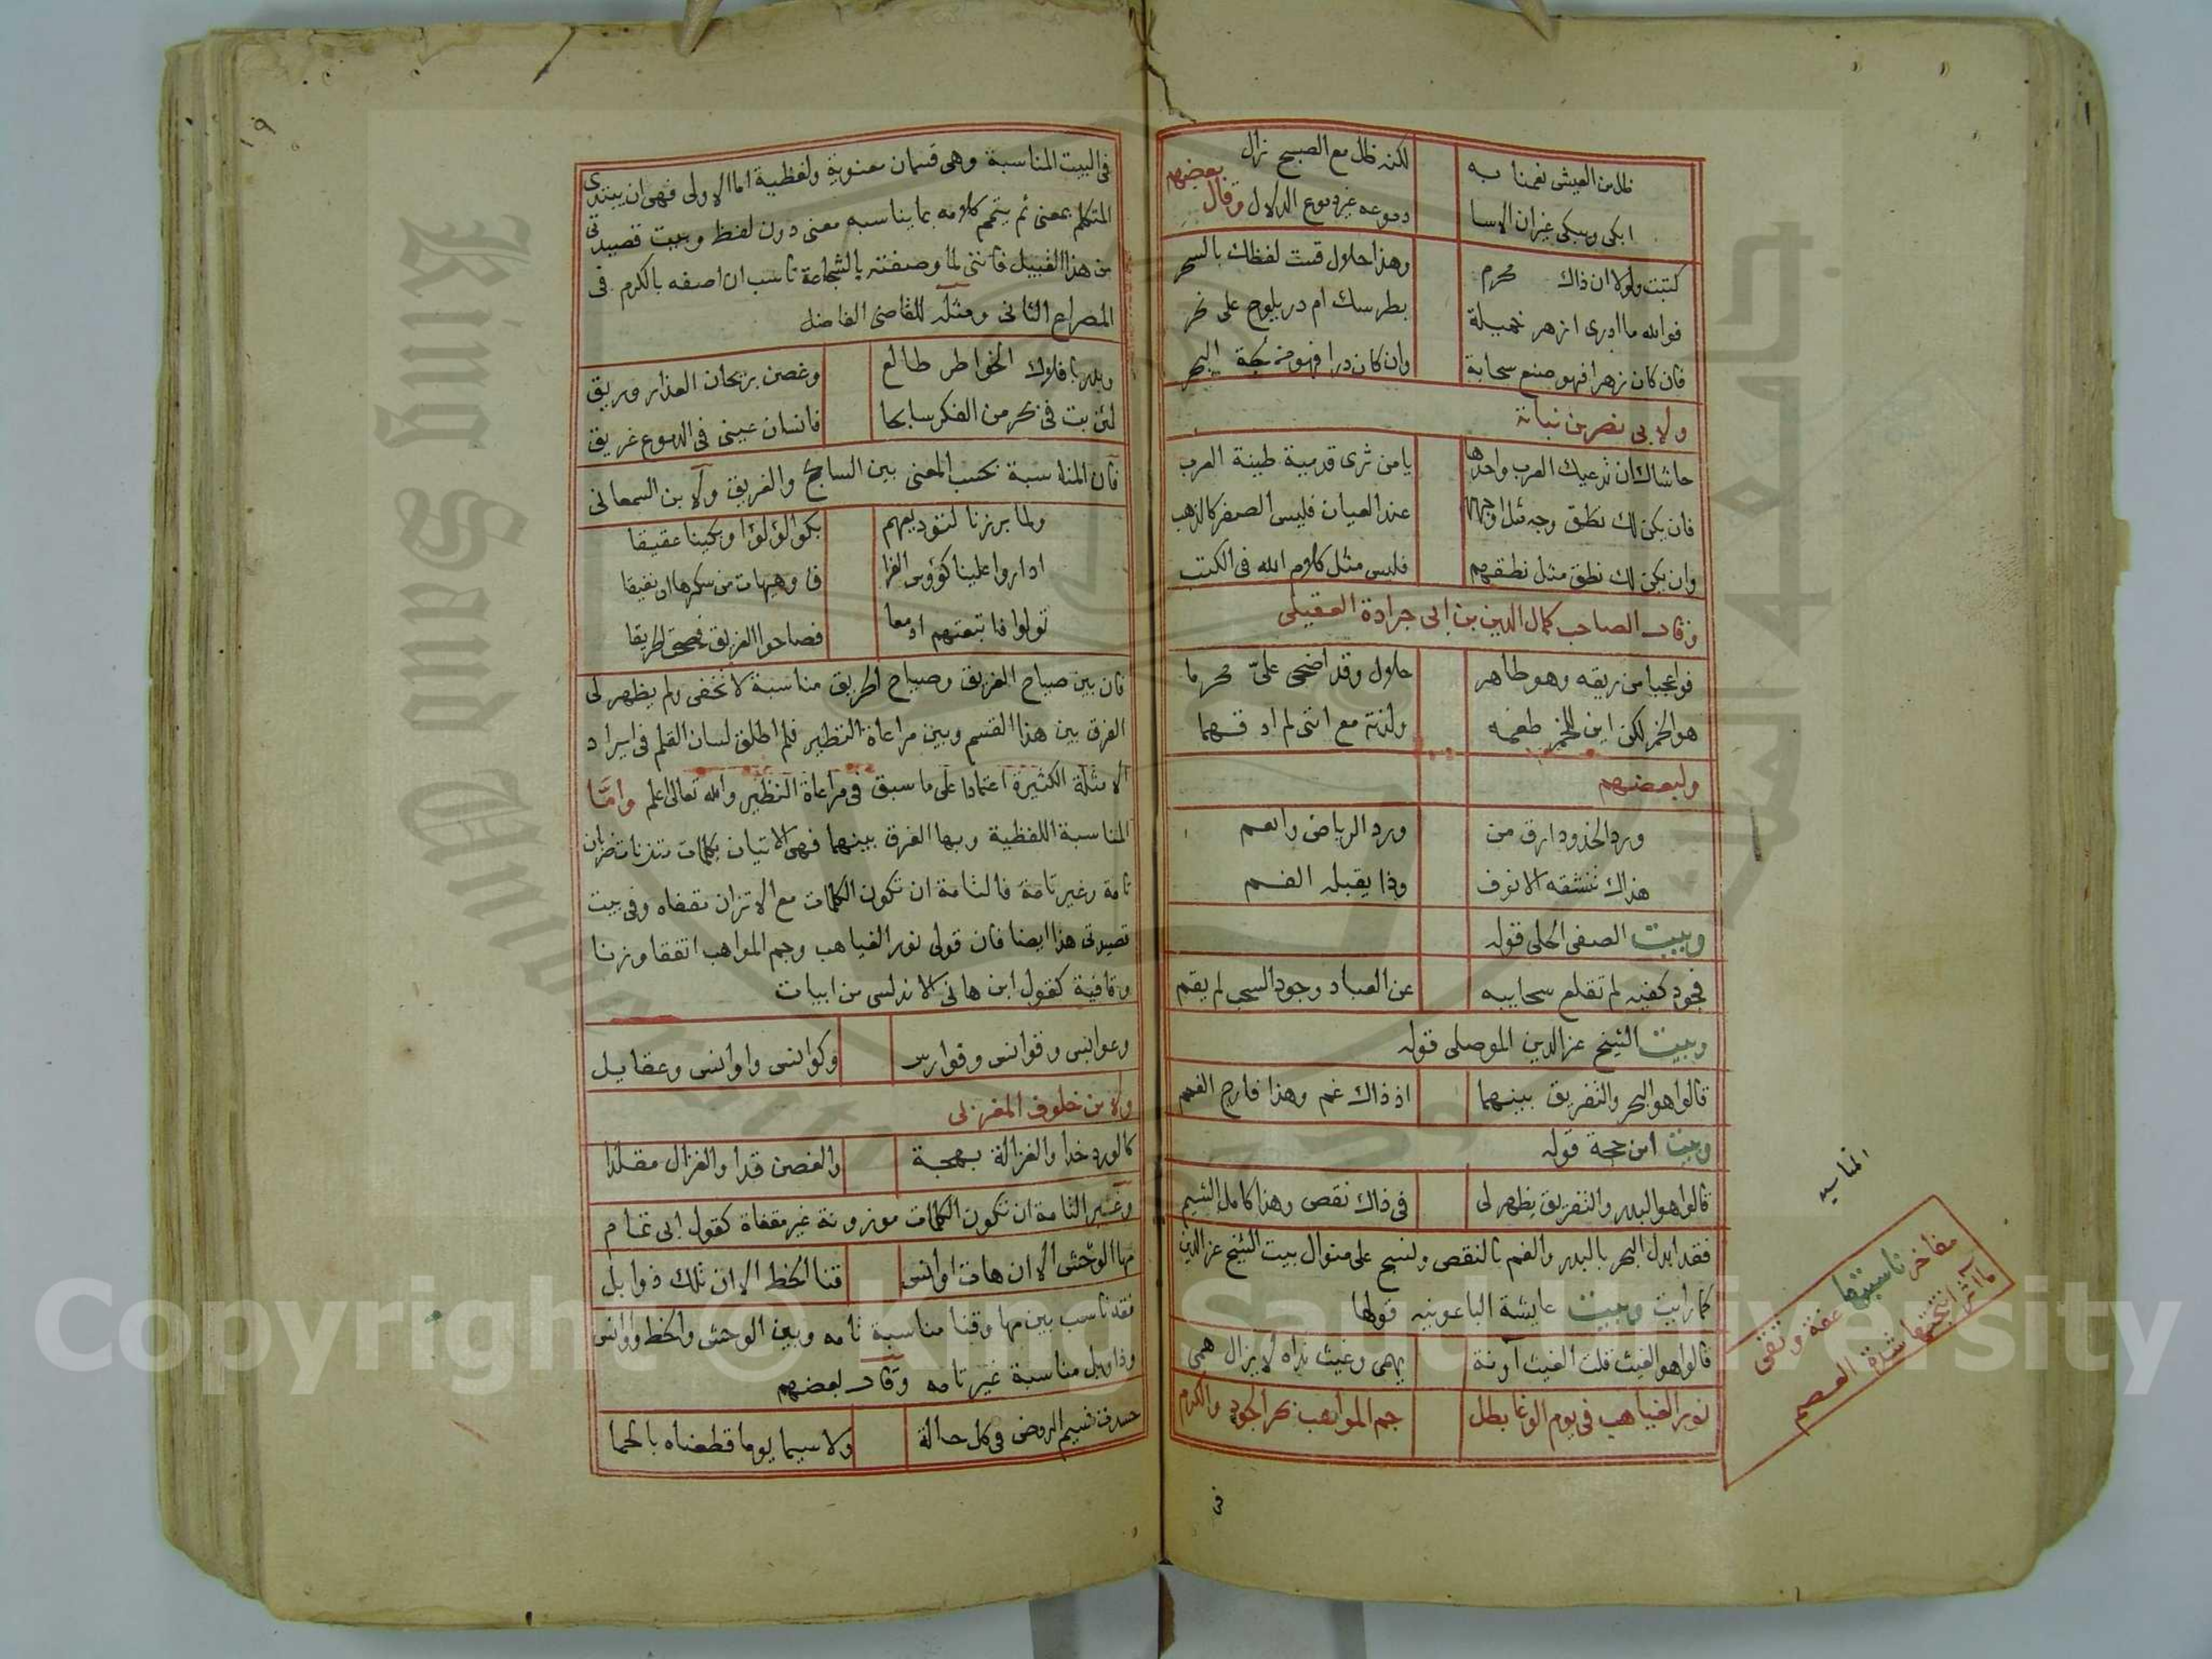 ظل من العيش نعمنا به لكنه ظل مع الصبح زال
ابكى ويبكى غيران الاسا دموعه غير دموع الدلال وقال بعضهم
كتبت ولولا ان ذاك محرم وهذا حلال قست لفظك بالسحر
فوالله ما ادرى ازهر خميلة بطرسك ام در يلوح على نحر
فان كان زهرا فهو صنع سحابة وان كان درا فهو من لجة البحر
ولابى نصر بن نباتة
حاشاك ان تدعيك العرب واحدها يا من ثرى قدميه طينة العرب
فان يكن لك وجه مثل اوجهها عند العيان فليس الصفر كالذهب
وان يكن لك نطق مثل نطقهم فليس مثل كلام الله فى الكتب
وقال الصاحب كمال الدين بن ابى جرادة العقيلى
فواعجبا من ريقه وهو طاهر حلال وقد اضحى علىّ محرما
هو الخمر لكن اين للخمر طعمه ولذته مع اننى لم اذقهما
ولبعضهم
ورد الخدود ارق من ورد الرياض وانعم
هذاك تنشقه الانوف وذا يقبله الفم
وبيت الصفى الحلى قوله
فجود كفيه لم تقلع سحايبه عن العباد وجود السحب لم يقم
وبيت الشيخ عز الدين الموصلى قوله
قالوا هو البحر والتفريق بينهما اذ ذاك غم وهذا فارج الغمم
وبيت ابن حجة قوله
قالوا هو البدر والتفريق يظهر لى فى ذاك نقص وهذا كامل الشيم
فقد ابدل البحر بالبدر والغم بالنقص ونسج على منوال بيت الشيخ عز الدين
كما رايت وبيت عايشة الباعونيه قولها
قالوا هو الغيث قلت الغيث آونة يهمى وغيث نداه لا يزال همى
نور الغياهب فى يوم الوغا بطل جم المواهب بحر الجود والكرم
فى
المناسبه
مفاخر ناسبتها عفة وتقى
مآثر انتجتها شدة العصم
١٩
فى البيت المناسبة وهى قسمان معنوية ولفظية اما الاولى فهى ان يبتدى
المتكلم بمعنى ثم يتمم كلامه بما يناسبه معنى دون لفظ وبيت قصيدتى
من هذا القبيل فاننى لما وصفته بالشجاعة ناسب ان اصفه بالكرم فى
المصراع الثانى ومثله للقاضى الفاضل
وبدر بافلاك الخواطر طالع وغصن بريحان العذار وريق
لئن بت فى بحر من الفكر سابحا فانسان عينى فى الدموع غريق
فان المناسبة بحسب المعنى بين السابح والغريق ولابن السمعانى
ولما برزنا لتوديعهم بكوا لؤلؤا وبكينا عقيقا
اداروا علينا كؤوس الفرا ق وهيهات من سكرها ان نفيقا
تولوا فاتبعتهم ادمعا فصاحوا الغريق فصحت الحريقا
فان بين صياح الغريق وصياح الحريق مناسبة لا تخفى ولم يظهر لى
الفرق بين هذا القسم وبين مراعاة النظير فلم اطلق لسان القلم فى ايراد
الامثلة الكثيرة اعتمادا على ما سبق فى مراعاة النظير والله تعالى اعلم واما
المناسبة اللفظية وبها الفرق بينهما فهى الاتيان بكلمات متزنات ضربان
تامة وغير تامة فالتامة ان تكون الكلمات مع الاتزان مقفاه وفى بيت
قصيدتى هذا ايضا فان قولى نور الغياهب وجم المواهب اتفقا وزنا
وقافية كقول ابن هانى الاندلسى من ابيات
وعوابس وقوانس وفوارس وكوانس واوانس وعقايل
ولابن خلوف المغربى
كالورد خدا والغزالة بهجة والغصن قدا والغزال مقلدا
وغير التامة ان تكون الكلمات موزونة غير مقفاة كقول ابى تمام
مها الوحشى الا ان هات اوانس قنا الخط الا ان تلك ذوابل
فقد ناسب بين مها وقنا مناسبة تامه وبين الوحش والخط واوانس
وذوابل مناسبة غير تامه وقال بعضهم
حمدت نسيم الروض فى كل حالة ولا سيما يوما قطعناه بالحما
Copyright © King Saud University
King Saud University